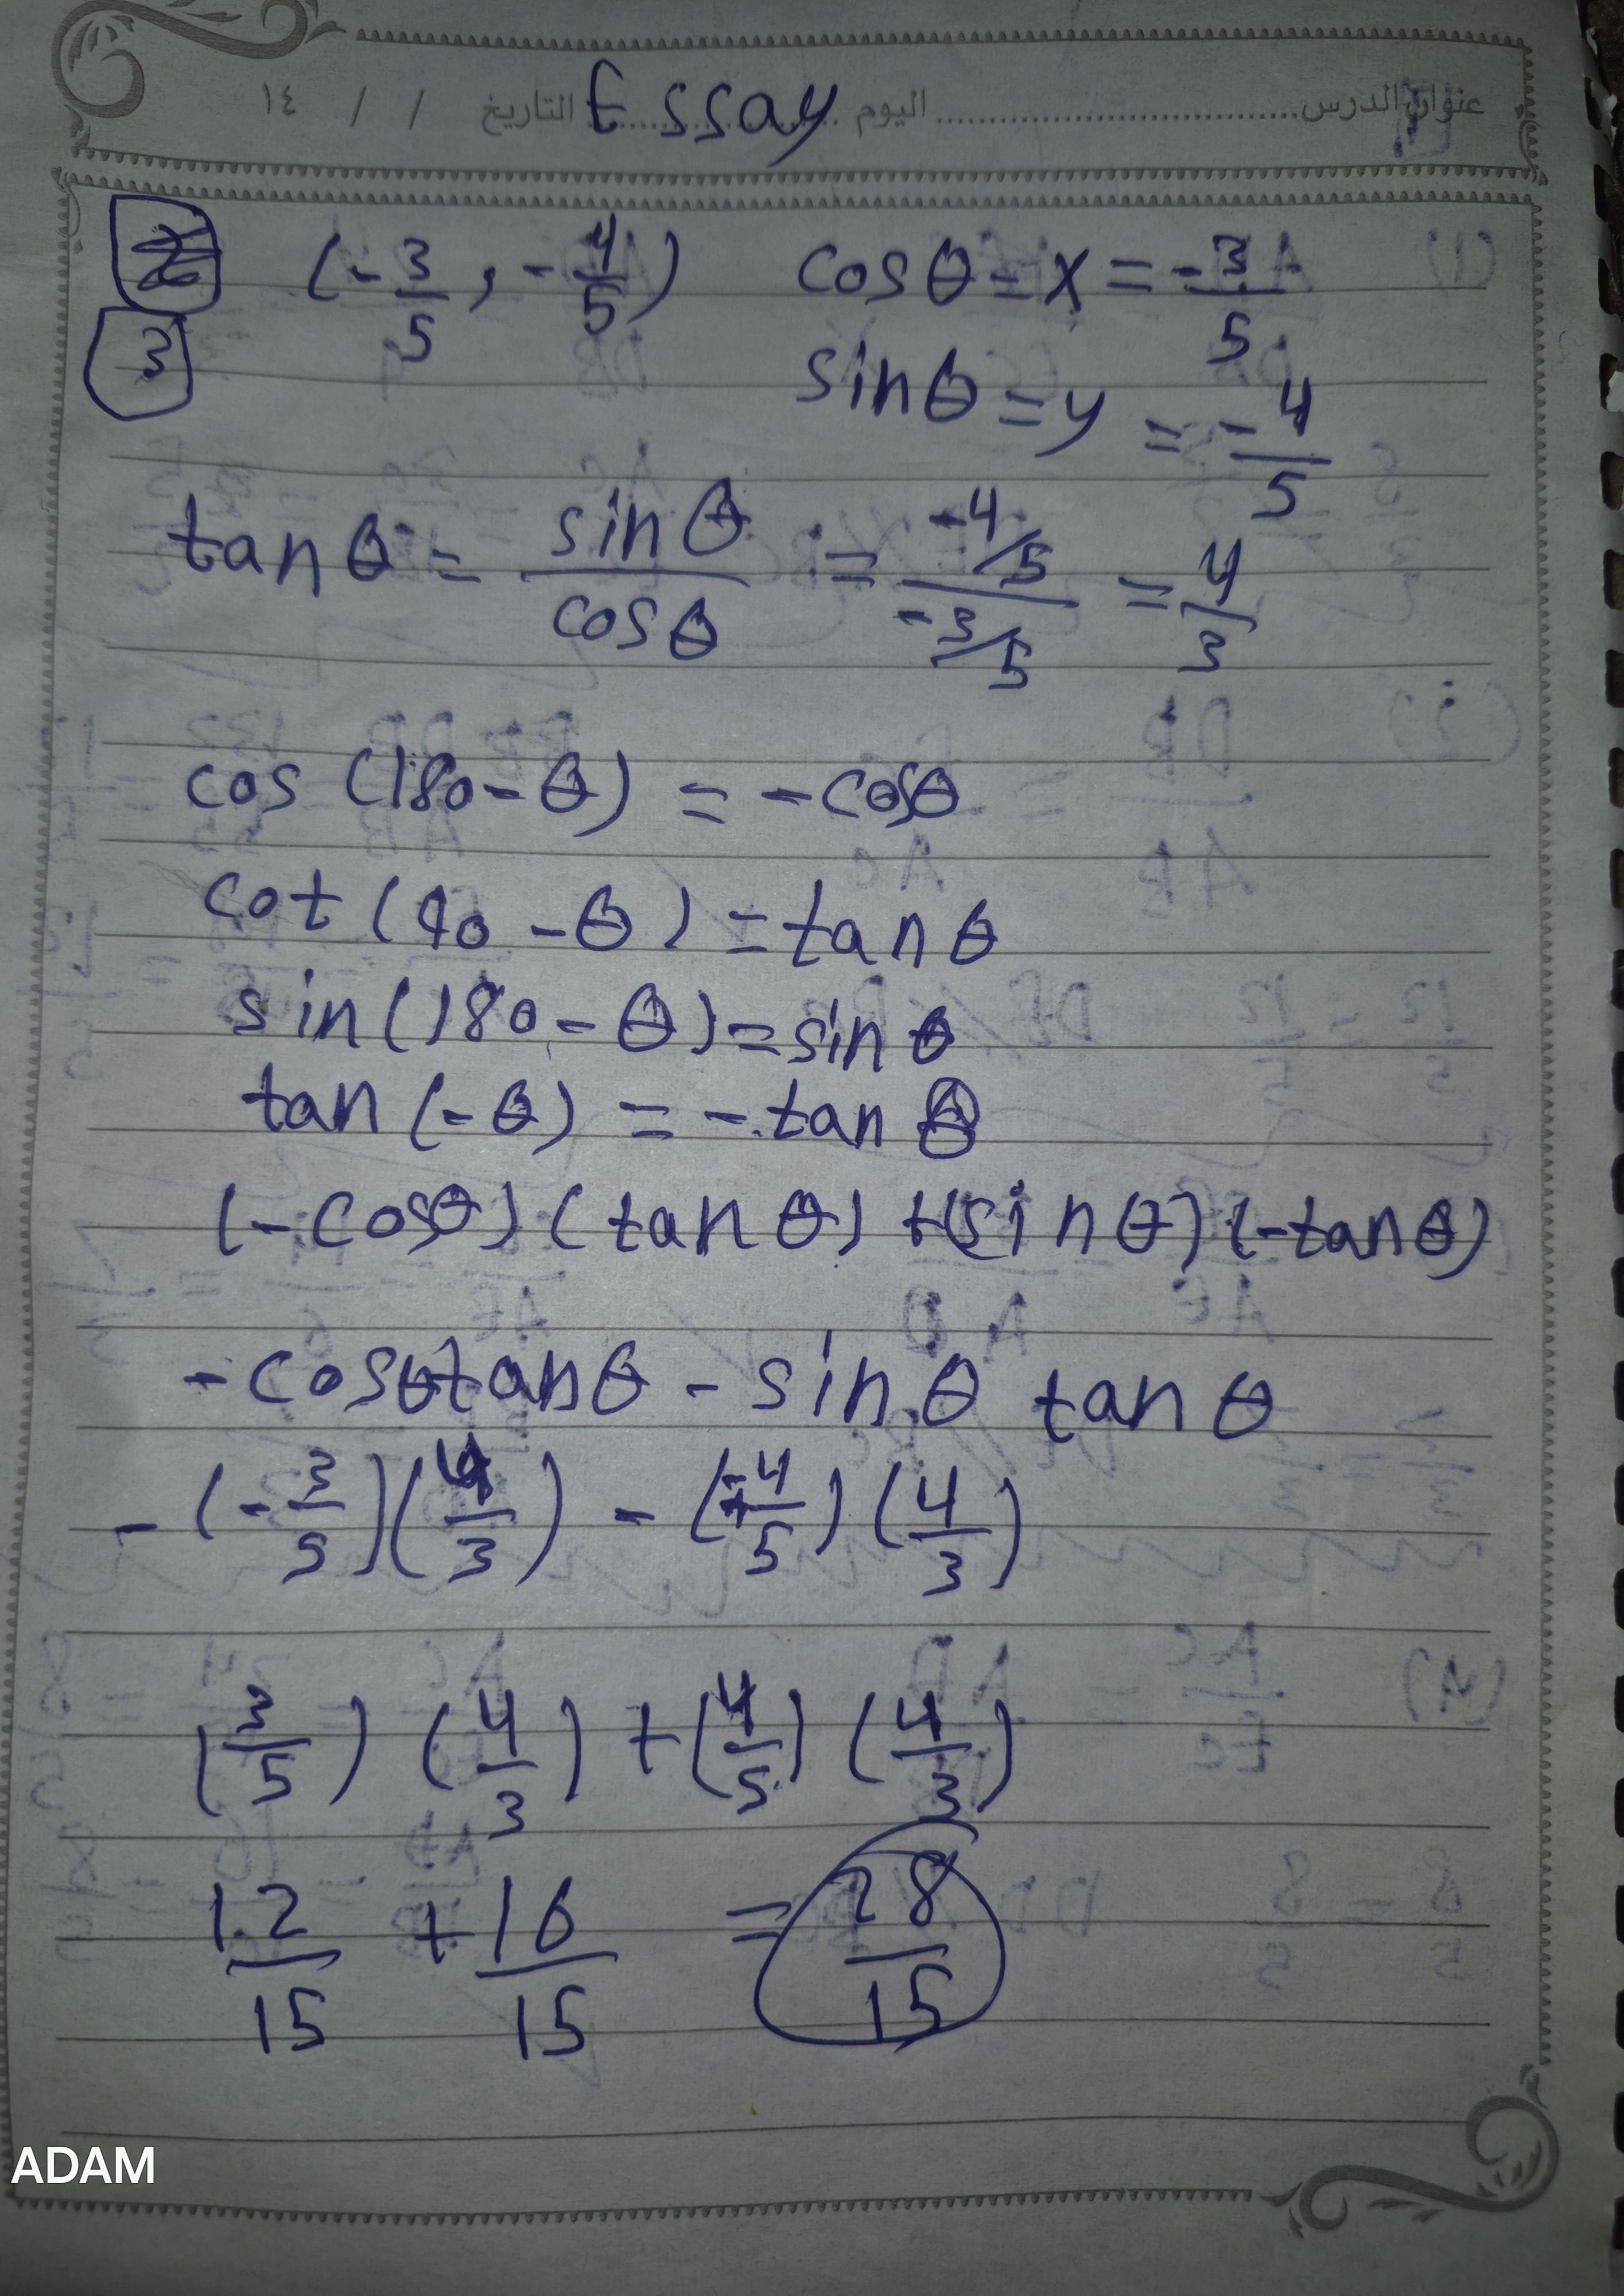 عنوان الدرس ........ اليوم ........ التاريخ / / ١٤
Essay
3 (-3/5, -4/5) cosθ = x = -3/5
sinθ = y = -4/5
tanθ = sinθ/cosθ = (-4/5)/(-3/5) = 4/3
cos (180-θ) = -cosθ
cot (90-θ) = tanθ
sin(180-θ) = sinθ
tan (-θ) = -tanθ
(-cosθ)(tanθ)+(sinθ)(-tanθ)
-cosθtanθ - sinθ tanθ
-(-3/5)(4/3) - (-4/5)(4/3)
(3/5) (4/3) + (4/5) (4/3)
12/15 + 16/15 = 28/15
ADAM